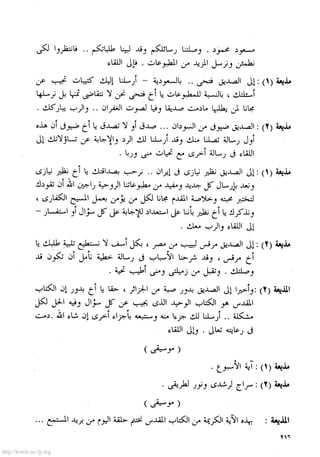 مسعود محمود . وصلتنا رسائلكم وقد لبينا طلباتكم .. فانتظروا لكى
نطمئن ونرسل المزيد من المطبوعات . فإلى اللقاء
مذيعة (١) : إلى الصديق فتحى .. بالسعودية – أرسلنا إليك كتيبات تجيب عن
أسئلتك ، بالنسبة للمطبوعات يا أخ فتحى نحن لا نتقاضى ثمنها بل نرسلها
مجانا لمن يطلبها مادمت صديقا وفيا لصوت الغفران .. والرب يباركك .
مذيعة (٢) : الصديق ضيوف من السودان ... صدق أو لا تصدق يا أخ ضيوف أن هذه
أول رسالة تصلنا منك وقد أرسلنا لك الرد والإجابة عن تساؤلاتك إلى
اللقاء فى رسالة أخرى مع تحيات منى وربا .
مذيعة (١) : إلى الصديق نظير نيازى فى إيران .. نرحب بصداقتك يا أخ نظير نيازى
ونعد بإرسال كل جديد ومفيد من مطبوعاتنا الروحية راجين الله أن تقودك
لتختبر محبته وخلاصه المقدم مجانا لكل من يؤمن بعمل المسيح الكفارى ،
ونذكرك يا أخ نظير بأننا على استعداد للإجابة على كل سؤال أو استفسار –
إلى اللقاء والرب معك .
مذيعة (٢) : إلى الصديق مرقس لبيب من مصر ، بكل أسف لا نستطيع تلبية طلبك يا
أخ مرقس ، وقد شرحنا الأسباب فى رسالة خطية نأمل أن تكون قد
وصلتك . وتقبل من زميلتى ومنى أطيب تحية .
المذيعة (٢) : وأخيرا إلى الصديق بدور صبة من الجزائر ، حقا يا أخ بدور إن الكتاب
المقدس هو الكتاب الوحيد الذى يجيب عن كل سؤال وفيه الحل لكل
مشكلة .. أرسلنا لك جزءا منه وسنتبعه بأجزاء أخرى إن شاء الله . دمت
فى رعايته تعالى . وإلى اللقاء
( موسيقى )
مذيعة (١) : آية الأسبوع .
مذيعة (٢) : سراج لرشدى ونور لطريقى .
( موسيقى )
المذيعة : بهذه الآية الكريمة من الكتاب المقدس نختم حلقة اليوم من بريد المستمع ...
٢١٦
http://kotob.no-ip.org